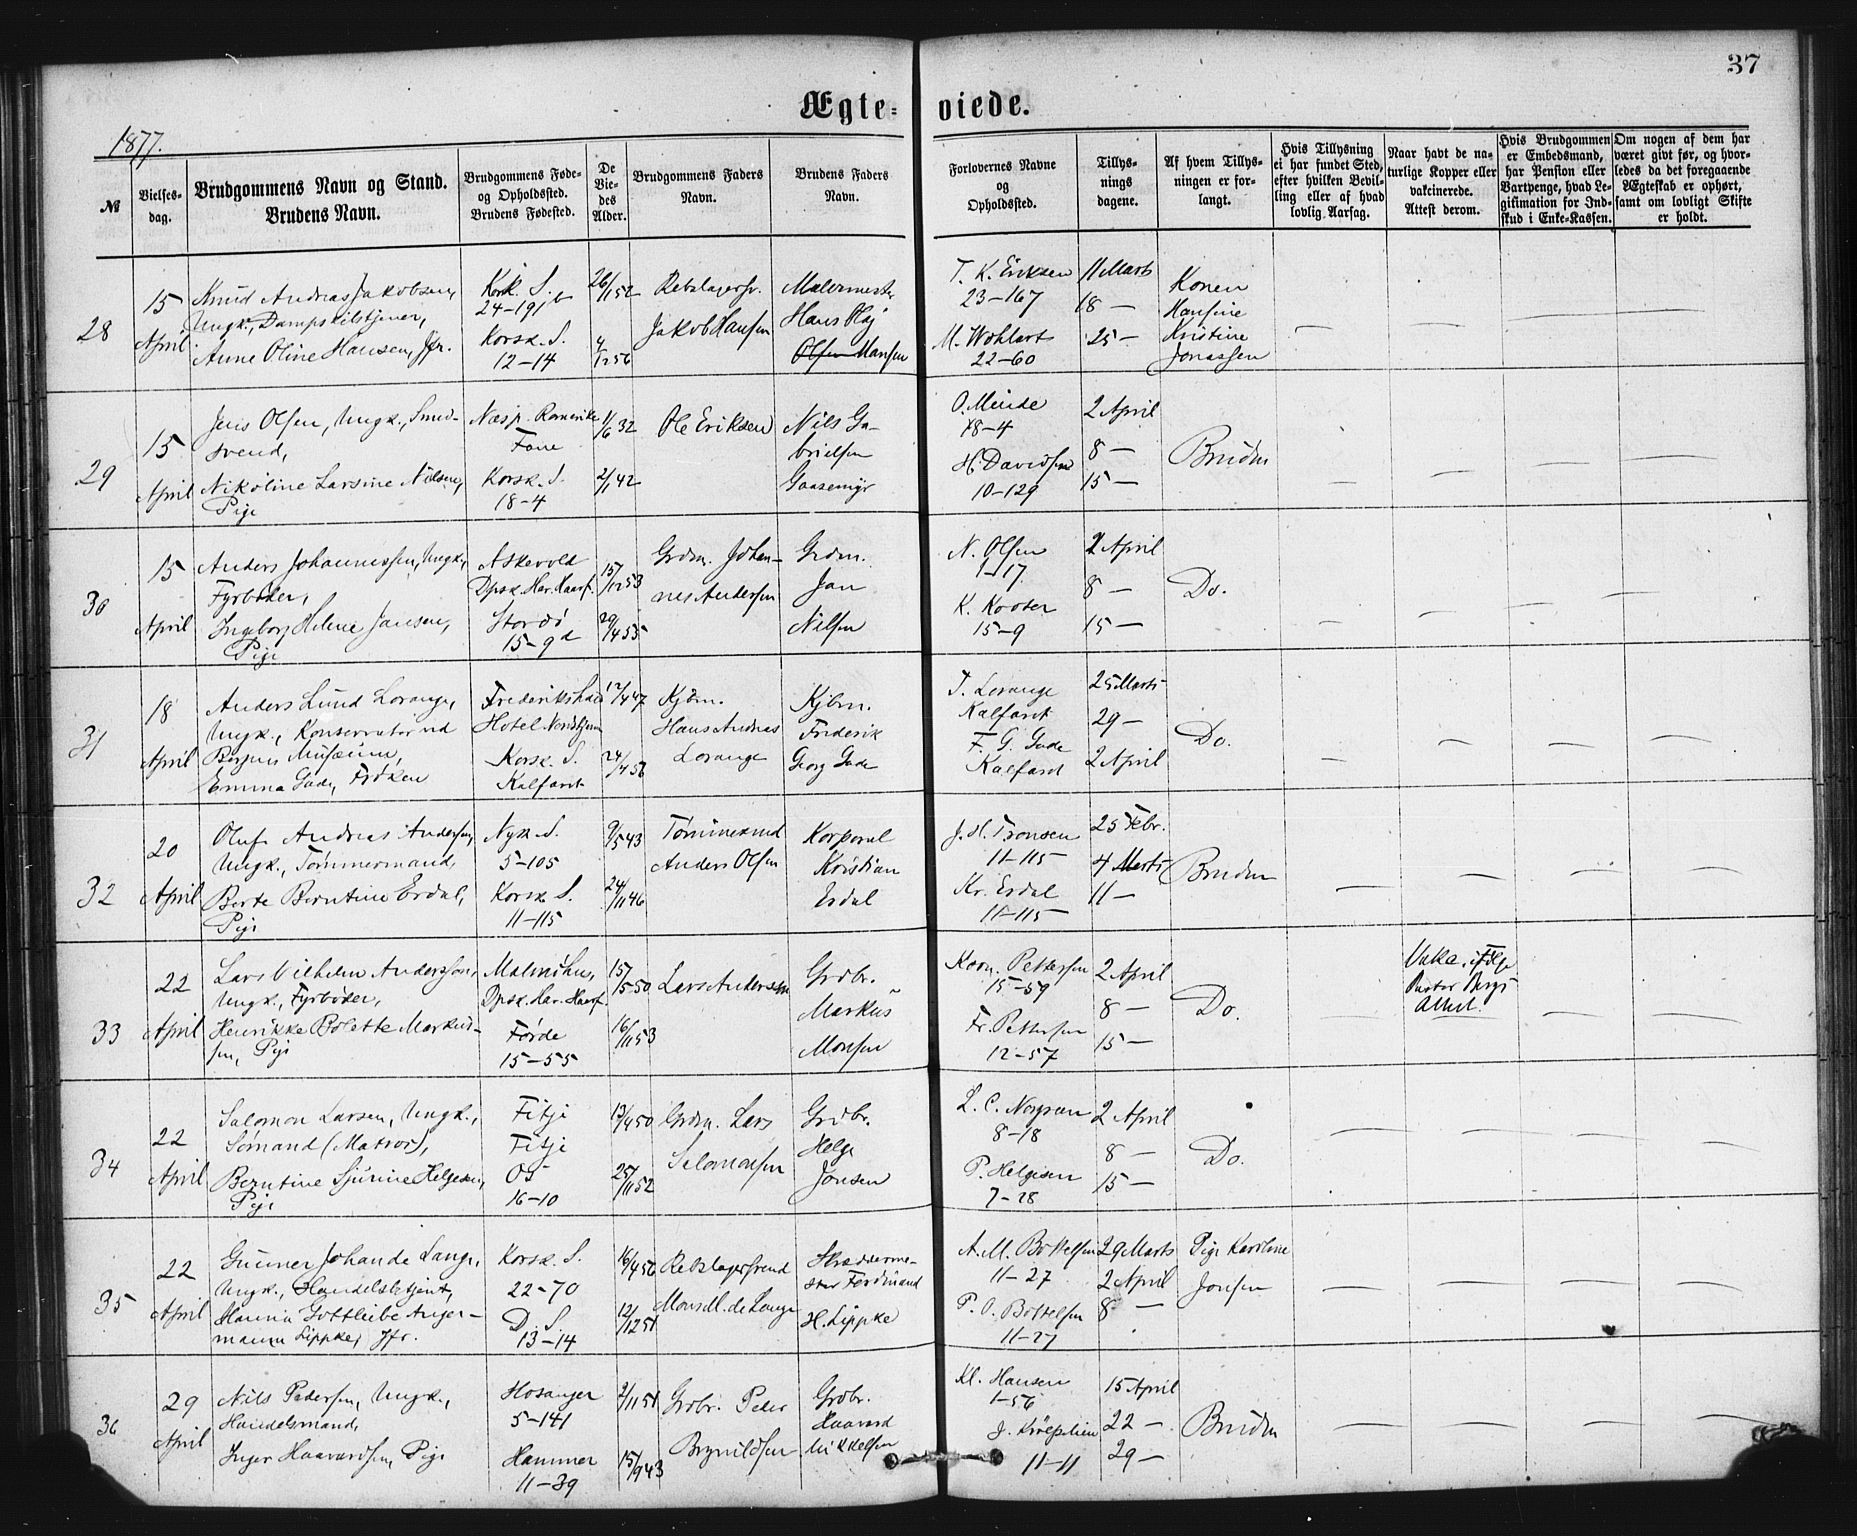 37
Ægte-
viede.
1877.
№
Vielses-
dag.
Brudgommens Navn og Stand.
Brudens Navn.
Brudgommens Føde-
og Opholdssted.
Brudens Fødested.
De
Vie-
des
Alder.
Brudgommens Faders
Navn.
Brudens Faders
Navn.
Forlovernes Navne
og
Opholdssted.
Tillys-
nings
dagene.
Af hvem Tillys-
ningen er for-
langt.
Hvis Tillysning
ei har fundet Sted,
efter hvilken Bevil-
ling eller af hvad
lovlig Aarsag.
Naar havt de na-
turlige Kopper eller
vakcinerede.
Attest derom.
Hvis Brudgommen
er Embedsmand,
har Pension eller
Vartpenge, hvad Le-
gitimation for Ind-
skud i Enke-Kassen.
Om nogen af dem har
været givt før, og hvor-
ledes da det foregaaende
Ægteskab er ophørt,
samt om lovligt Skifte
er holdt.
28
15
April
Knud Andreas Jakobsen,
Ungk., Dampskibstjener,
Anne Oline Hansen, Jfr.
Korsk. S.
24-19
Korsk. S.
12-14
26/1 52
4/12 56
Jakob Hansen
Malermest.
Hans
Olsen Hansen
T. K. Eriksen
23-167
M. Wohlert
22-60
11 Marts
18 —
25 —
Konen
Hansine
Kristine
Jonassen
29
15
April
Jens Olsen, Ungk., Smed-
svend,
Nikoline Larsine Nilsen,
Pige
Næsp. Romerike
Fane
Korsk. S.
18-4
1/6 32
2/1 42
Ole Eriksen
Nils Ga-
brielsen
Gaasemyr
O. Meide
18-4
H. Davidsen
10-129
2 April
8 —
15 —
Bruden
30
15
April
Anders Johannessen, Ungk.,
Fyrbøder,
Ingeborg Helene Jansen,
Pige
Askevold
Dpsk. Har. Haarf.
Stordø
15-9d
15/12 53
29/4 55
Grdm. Johan-
nes Andersen
Grdm.
Jan
Nilsen
N. Olsen
1-17
K. Kooter
15-9
2 April
8 —
15 —
Do.
31
18
April
Anders Lund Lorange,
Ungk., Konservator ved
Bergens Musæum,
Emma Gade, Frøken
Frederikshald
Hotel Nordstjern
Korsk. S.
Kalfaret
12/4 47
24/4 56
Kjøbm.
Hans Andreas
Lorange
Kjøbm.
Frederik
Georg Gade
T. Lorange
Kalfaret
F. G. Gade
Kalfaret
25 Marts
29 —
2 April
Do.
32
20
April
Oluf Andreas Andersen,
Ungk., Tømmermand,
Berte Berntine Erdal,
Pige
Nyk. S.
5-105
Korsk. S.
11-115
9/5 43
24/11 46
Tømmermd
Anders Olsen
Korporal
Kristian
Erdal
J. H. Tronsen
11-115
Kr. Erdal
11-115
25 Febr.
4 Marts
11 —
Bruden
33
22
April
Lars Vilhelm Andersson,
Ungk., Fyrbøder,
Henrikke Bolette Markus-
sen, Pige
Malmøhus,
Dpsk. Har. Haarf.
Førde
15-55
15/5 50
16/11 53
Lars Andersson
Grdbr.
Markus
Monsen
Korn. Pettersen
15-59
Fr. Pettersen
12-57
2 April
8 —
15 —
Do.
Vakc. ifølge
Pastor Bergs
Attest.
34
22
April
Salomon Larsen, Ungk.,
Sømand (Matros),
Berntine Sjurine Helgesen,
Pige
Fitje
Fitje
Os
16-10
13/4 50
25/11 52
Grdm. Lars
Salomonsen
Grdbr.
Helge
Jonsen
L. C. Norgreen
8-18
P. Helgesen
7-28
2 April
8 —
15 —
Do.
35
22
April
Gunner Johan de Lange,
Ungk., Handelsbetjent,
Manna Gottliebe Anger-
mann Lippke, Jfr.
Korsk. S.
22-70
D. S.
13-14
16/4 56
12/12 51
Rebslagersvend
Mons M. de Lange
Skrædderme-
ster Ferdinand
H. Lippke
A. M. Bottelsen
11-27
P. O. Bottelsen
11-27
29 Marts
2 April
8 —
Pige Karoline
Jonsen
36
29
April
Nils Pedersen, Ungk.,
Handelsmand,
Inger Haavardsen, Pige
Hosanger
5-141
Hammer
11-39
2/11 51
15/9 43
Grdbr. Peder
Brynildsen
Grdbr.
Haavard
Mikkelsen
Kl. Hansen
1-56
11-11
15 April
22 —
29 —
Bruden